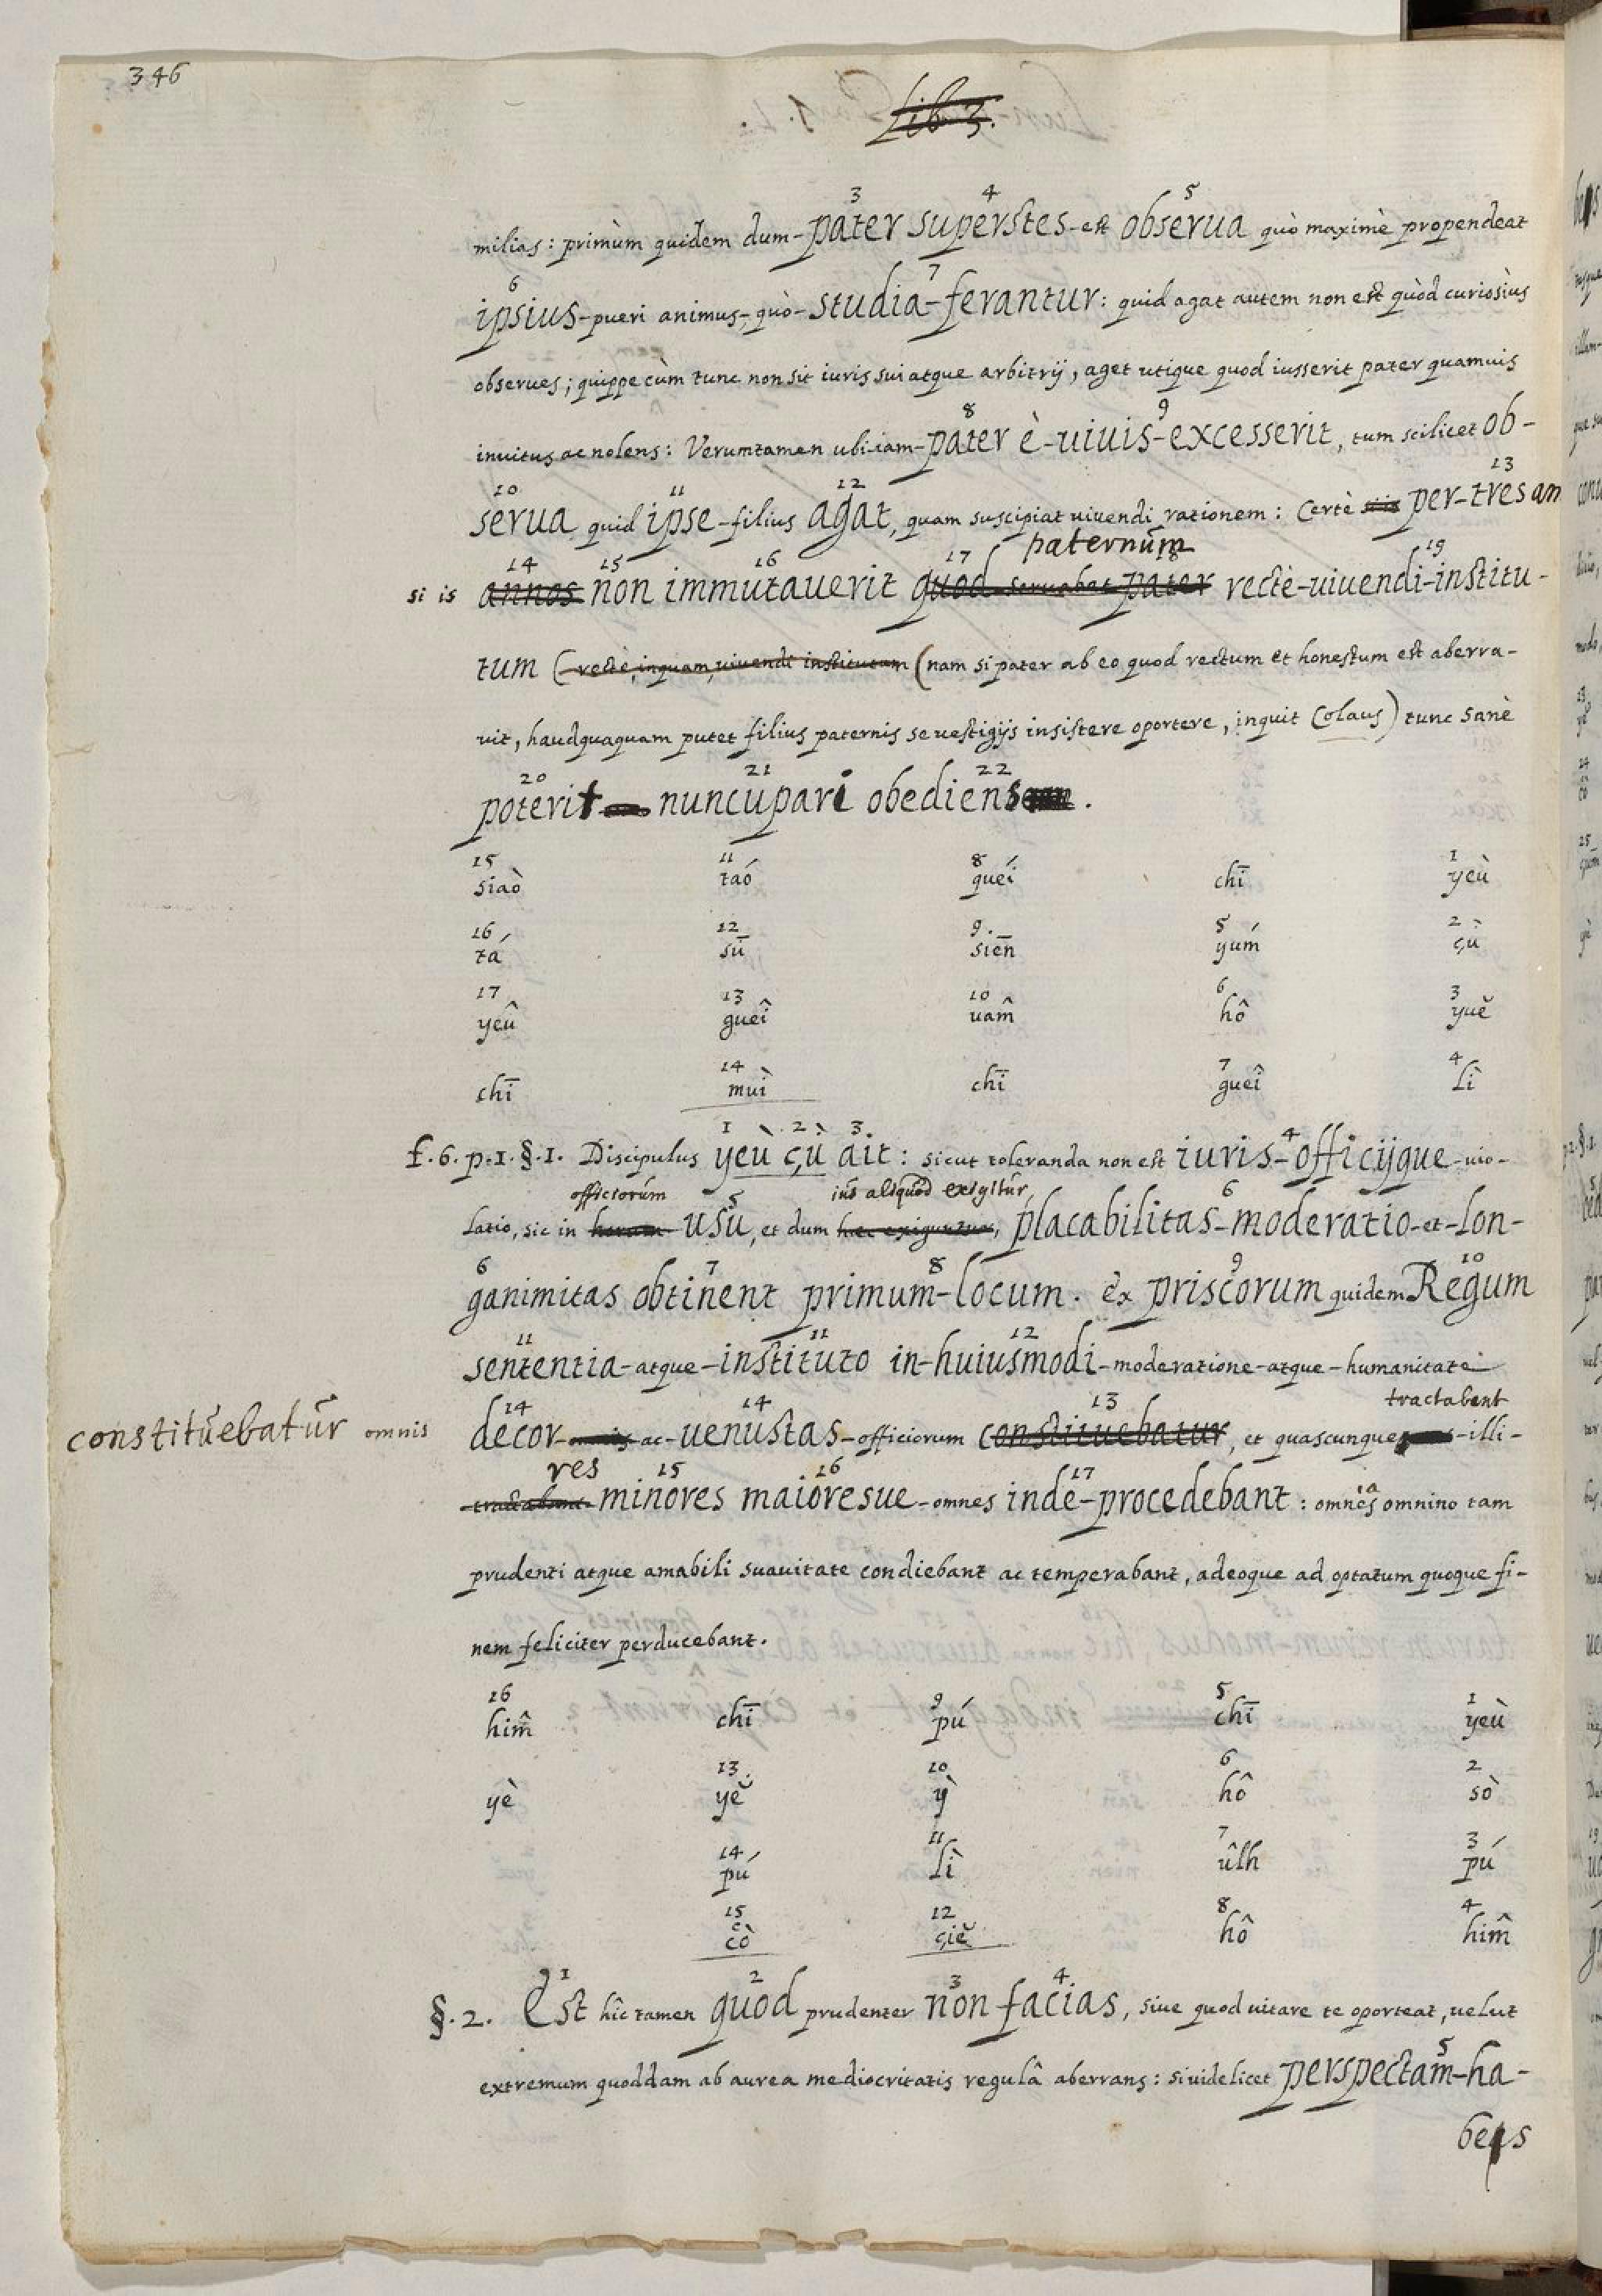 346
Lib. 3.
3 4 5
milias: primùm quidem dum-pater superstes-est obserua quò maximè propendeat
6 7
ipsius-pueri animus, quò-studia-ferantur: quid agat autem non est quòd curiosiùs
obserues; quippe cùm tunc non sit iuris sui atque arbitrij, aget utique quod iusserit pater quamuis
8 9
inuitus ac nolens: Verumtamen ubi-iam-pater è-uiuis-excesserit, tum scilicet ob-
10 11 12 13
serua quid ipse-filius agat, quam suscipiat uiuendi rationem: Certè si is per-tres an
paternum
14 15 16 17 18 19
si is annos non immutauerit quod seruabat pater rectè-uiuendi-institu-
tum (rectè, inquam, uiuendi institutum (nam si pater ab eo quod rectum et honestum est aberra-
uit, haudquaquam putet filius paternis se uestigijs insistere oportere, inquit Colaus) tunc sanè
20 21 22
poterit nuncupari obediens.
15 11 8 1
siaò táo guéi chī yeù
16 12 9 5 2
tá sū siēn yúm çù
17 13 10 6 3
yeû gueî uâm hô yuĕ
14 7 4
chī muì chī gueî Lì
1 2 3 4
f. 6. p. 1. §. 1. Discipulus yeù çù ait: sicut toleranda non est iuris-officijque-uio-
officiorum ius aliquod exigitur
5 6
latio, sic in harum usu, et dum hæc exiguntur, placabilitas-moderatio-et-lon-
6 7 8 9 10
ganimitas obtinent primum-locum. ex priscorum quidem Regum
11 11 12
sententia-atque-instituto in-huiusmodi-moderatione-atque-humanitate
14 14 13 tractabant
constituebatur omnis decor-omnis ac-uenustas-officiorum constituebatur, et quascunque-illi-
res 15 16 17
tractabant minores maioresue-omnes inde-procedebant: omnes omnino tam
prudenti atque amabili suauitate condiebant ac temperabant, adeoque ad optatum quoque fi-
nem feliciter perducebant.
16 9 5 1
him̂ chī pú chī yeù
13 10 6 2
yè yĕ ỳ hô sò
14 11 7 3
pú Lì ûlh pú
15 12 8 4
cò çiĕ hô him̂
1 2 3 4
§. 2. Est hîc tamen quod prudenter non facias, siue quod uitare te oporteat, uelut
5
extremum quoddam ab aurea mediocritatis regulâ aberrans: si uidelicet perspectam-ha-
bens